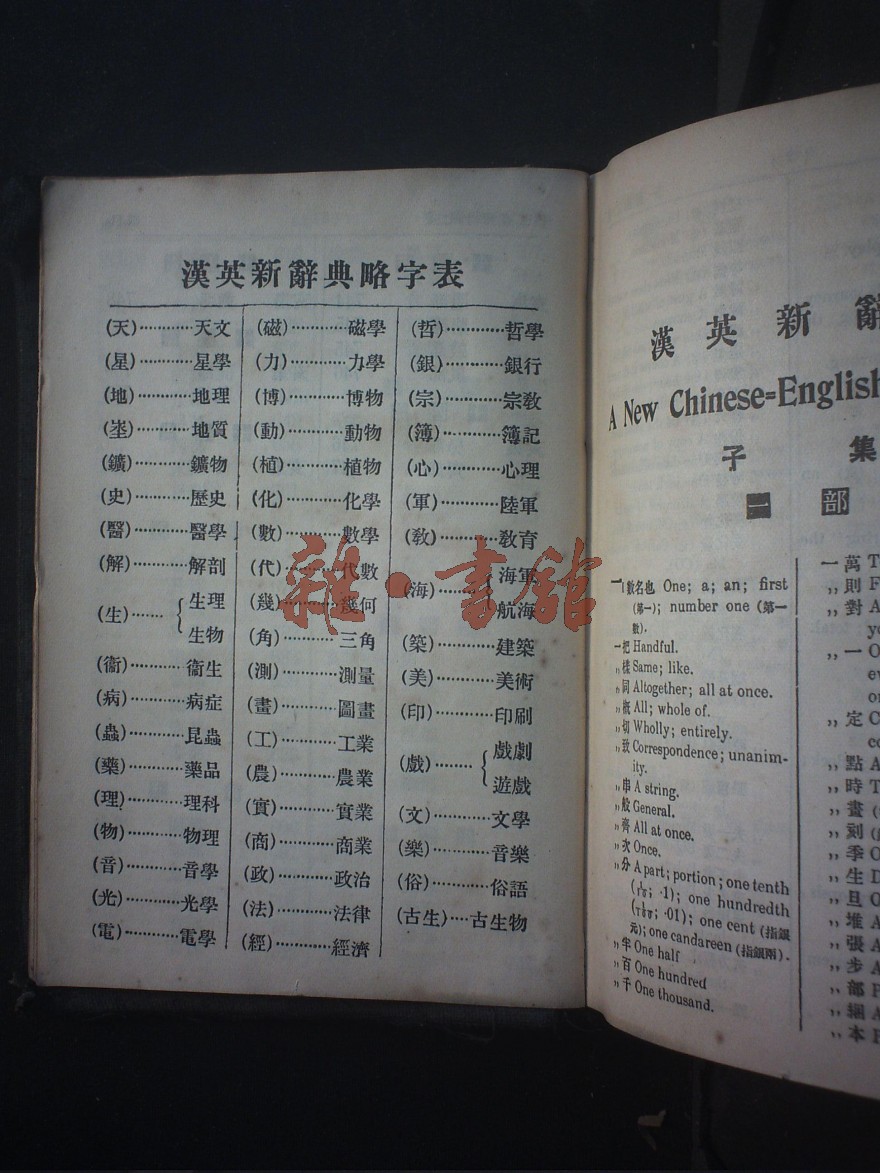 漢英新辭典略字表
(天)…………天文
(星)…………星學
(地)…………地理
(埊)…………地質
(鑛)…………鑛物
(史)…………歷史
(醫)…………醫學
(解)…………解剖
(生)……{生理
生物
(衞)…………衞生
(病)…………病症
(蟲)…………昆蟲
(藥)…………藥品
(理)…………理科
(物)…………物理
(音)…………音學
(光)…………光學
(電)…………電學
(磁)…………磁學
(力)…………力學
(博)…………博物
(動)…………動物
(植)…………植物
(化)…………化學
(數)…………數學
(代)…………代數
(幾)…………幾何
(角)…………三角
(測)…………測量
(畫)…………圖畫
(工)…………工業
(農)…………農業
(實)…………實業
(商)…………商業
(政)…………政治
(法)…………法律
(經)…………經濟
(哲)…………哲學
(銀)…………銀行
(宗)…………宗敎
(簿)…………簿記
(心)…………心理
(軍)…………陸軍
(敎)…………敎育
(海)……{海軍
航海
(築)…………建築
(美)…………美術
(印)…………印刷
(戲)……{戲劇
遊戲
(文)…………文學
(樂)…………音樂
(俗)…………俗語
(古生)……古生物
雜·書館
漢英新辭
A New Chinese=English
子集
一部
一 數名也 One; a; an; first
(第一); number one (第一
數).
一把 Handful.
,,樣 Same; like.
,,同 Altogether; all at once.
,,概 All; whole of.
,,切 Wholly; entirely.
,,致 Correspondence; unanim-
ity.
,,串 A string.
,,般 General.
,,齊 All at once.
,,次 Once.
,,分 A part; portion; one tenth
(1/10; ·1); one hundredth
(1/100; ·01); one cent (指銀
元); one candareen (指銀兩).
,,半 One half
,,百 One hundred
,,千 One thousand.
一萬 T
,,則 F
,,對 A
yo
,,一 O
ev
or
,,定 C
co
,,點 A
,,時 T
,,畫 (
,,刻 (
,,季 O
,,生 D
,,旦 O
,,堆 A
,,張 A
,,步 A
,,部 F
,,綑 A
,,本 F